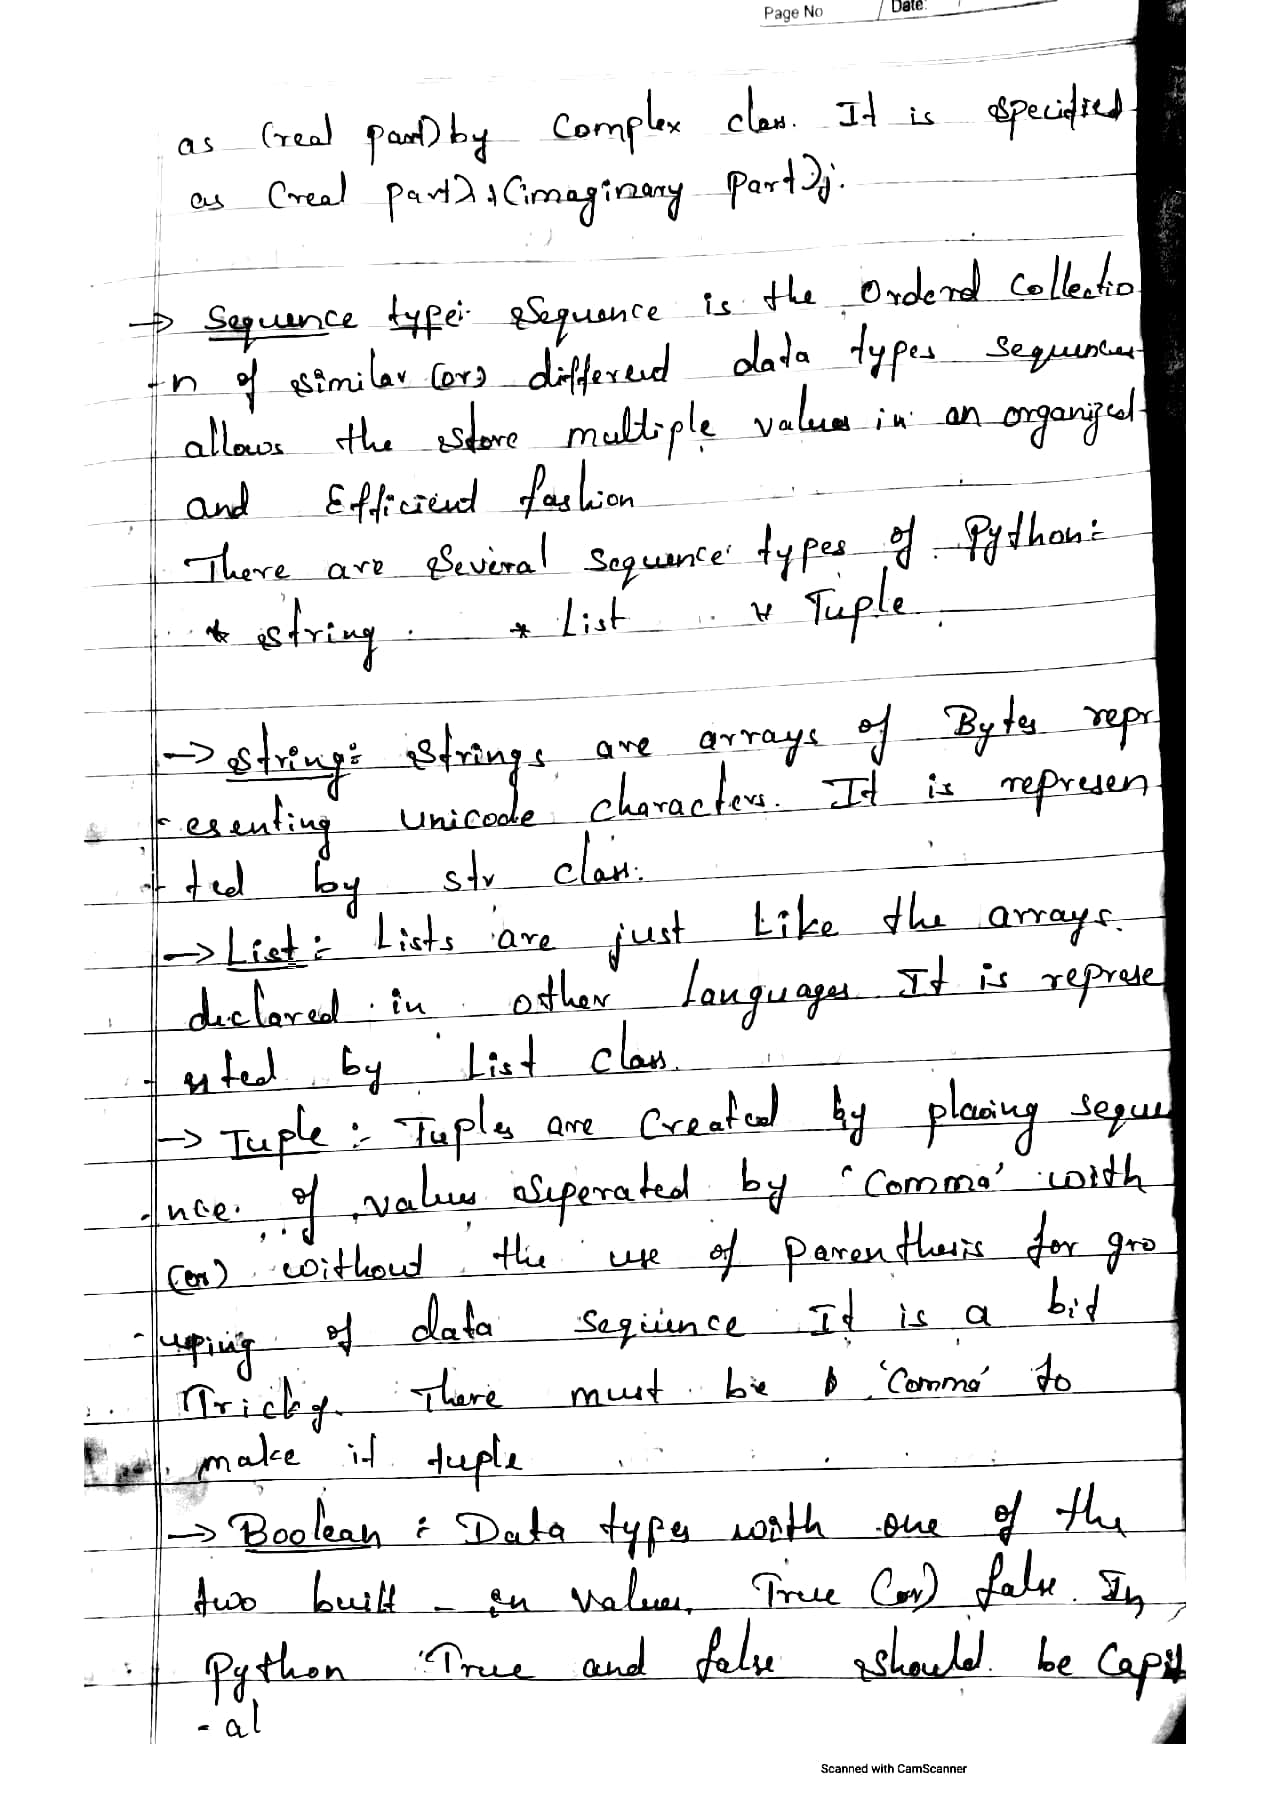 Page No / Date:
as (real part) by Complex class. It is specified
as (real part) + (imaginary part)j.
→ Sequence type:- Sequence is the Orderd Collectio
-n of similar (or) different data types sequences
allows the store multiple values in an organized
and Efficient fashion
There are Several Sequence types of Python:-
* string * List * Tuple
→ String:- Strings are arrays of Bytes repr
-esenting unicode characters. It is represen
-ted by str class.
→ List:- Lists are just Like the arrays.
declared in other languages It is represe
nted by List class.
→ Tuple:- Tuples are Created by placing seque
-nce of values seperated by 'Comma' with
(or) without the use of parenthesis for gro
-uping of data sequence It is a bit
Tricky. There must be 'Comma' to
make it tuple
→ Boolean:- Data types with one of the
two built-in values, True (or) false. In
Python True and false should be Capit
-al
Scanned with CamScanner